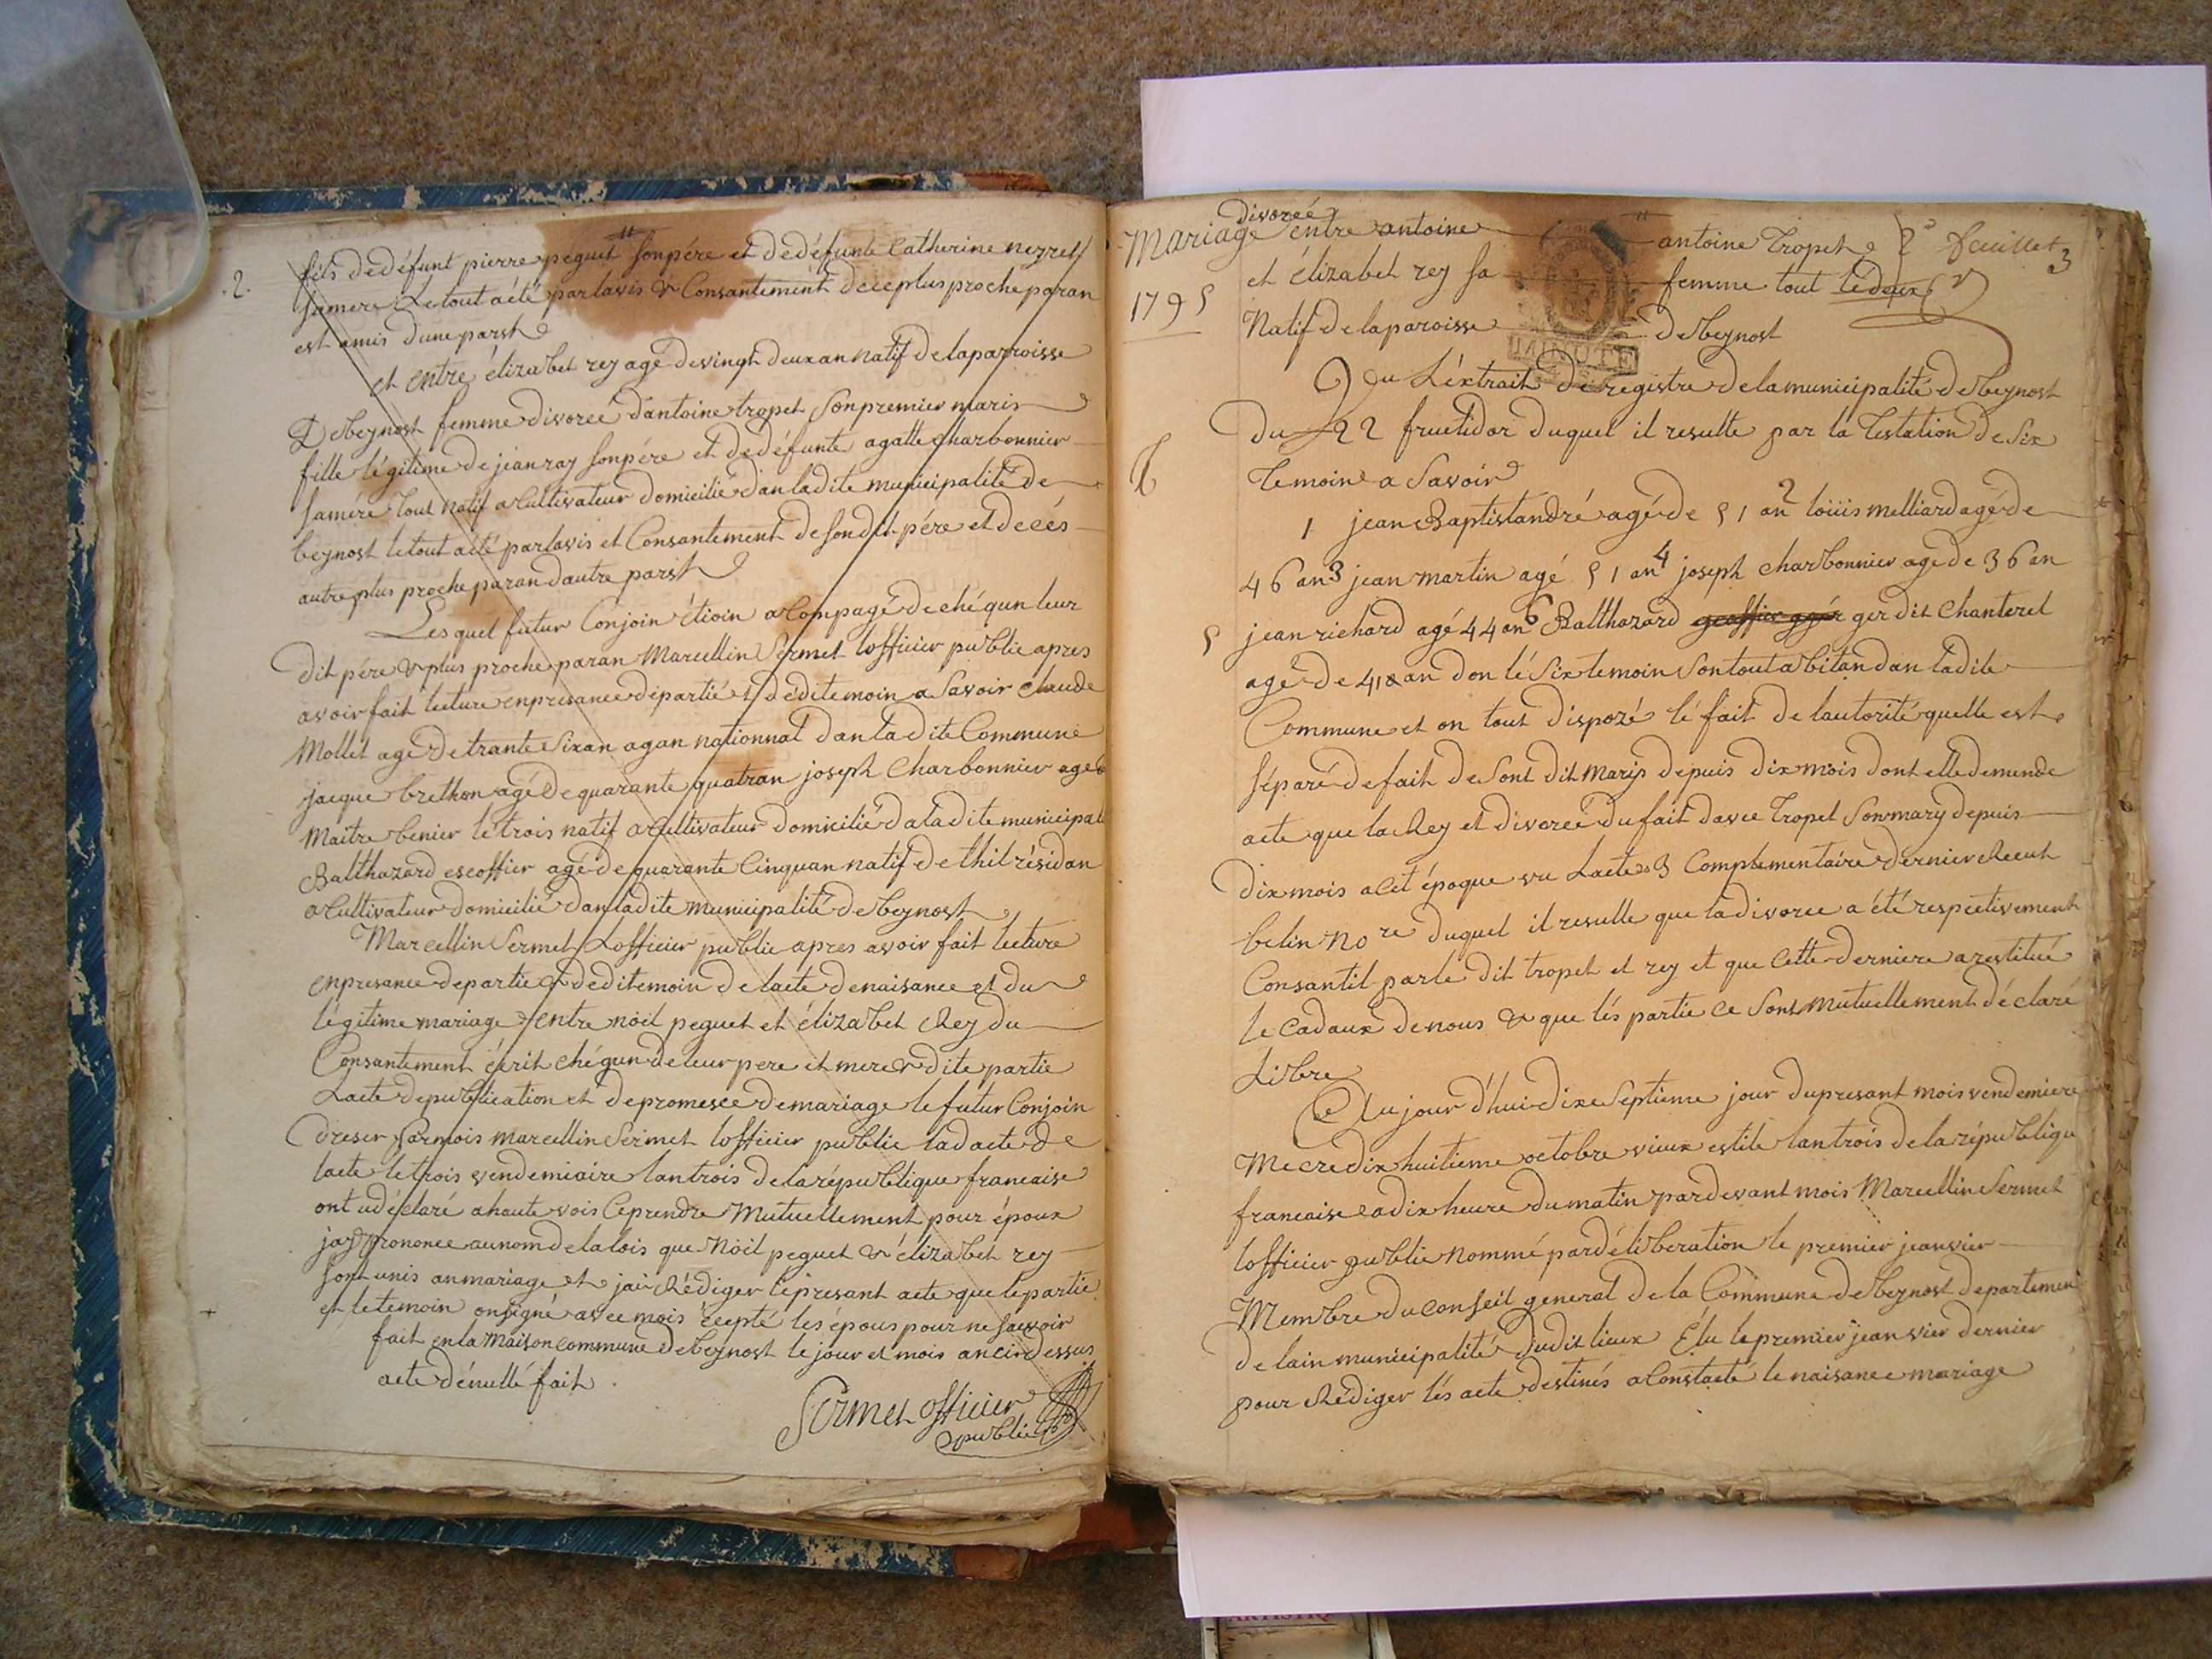 .2.
fils dedéfunt pierre peguet sonpére et dedéfunte Catherine neyret
samere Letout aété parlavis & Consantement dece plus proche paran
est amis dune parst
et entre élizabet rey agé devingt deux an natif delaparroisse
Debeynost femme divorcé dantoine tropet Son premier maris
fille légitime dejéan ray sonpére et dedéfunte agatte Charbonnier
samére tout natif aCultivateur domicilié dan ladite municipalité de
beynost letout aété parlavis et Consantement desondit pére et decés
autre plus proche paran dautre parst
Les quel futur Conjoin étioin aCompagé de chéqun leur
dit pére & plus proche paran Marcellin Sermet lofficier public apres
avoir fait lecture enpresance départié & déditemoin a Savoir Claude
Mollet agé detrante Sixan agan nationnal dan la dite Commune
jacque brethon agé dequarante quatran joseph Charbonnier agé
Maitre benier létrois natif aCultivateur domicilié da la dite municipal
Balthazard escoffier agé dequarante Cinquan natif de thil résidan
aCultivateur domicilié dan ladite municipalité de beynost
Marcellin Sermet Lofficier public apres avoir fait lecture
enpresance departie & deditemoin de lacte denaisance et du
légitime mariage entre nöel peguet et élizabet Rey du
Consantement écrit chéqun deleur pere et mere & dite partie
Lacte depublication et depromesce demariage le futur Conjoin
dreser parmois marcellin Sermet lofficier public ladacte de
lacte létrois vendemiaire lantrois delarépublique francaise
ont udéclaré ahaute vois Ceprendre Mutuellement pour époux
jay prononcé aunom delalois que Nöel peguet & élizabet rey
sont unis anmariage et jai Rédiger léprésant acte que lepartie
et letemoin onsigné avec mois écepté lés épous pour ne savoir
fait enla Maison commune debeynost le jour et mois ancidessus
acte dénullé fait
Sermet officier
public
divorcé
Mariage entre antoine antoine tropet 2e feuillet 3
et élizabet rey sa femme tout lé deux
1795 Natif delaparoisse debeynost
MINUTE
Vu Léxtrait de registre delamunicipalité debeynost
du 22 fructidor duquel il resulte par la testation de Six
temoin a Savoir
1 jean Baptistandré agé de 51 an 2 loüis melliard agé de
46 an 3 jean martin agé 51 an 4 joseph charbonnier age de 36 an
5 jean richard agé 44 an 6 Balthazard ger dit Chanterel
agé de 48 an don lé Six temoin Sontout abitan dan ladite
Commune et on tout dispozé lé fait de lautorité quelle est
séparé defait de Sont dit marÿs depuis dix mois dont elle demende
acte que la Rey et divorcé du fait davec tropet Sonmarÿ depuis
dix mois a Cet époque vu Lacte 3 Complementaire dernier Recut
belin no re duquel il resulte que ladivorce a été respectivement
Consantit par le dit tropet et rey et que Cette derniere a restitué
le Cadaux denous & que lés partie Ce Sont Mutuellement déclaré
Libre
Aujour d'hui dixe Septieme jour dupresant mois vendemiere
Mecredix huitieme octobre vieux estile lantrois delarépublique
francaise adix heure dumatin pardevant mois Marcellin Sermet
lofficier public Nommé pardéliberation le premier jeanvier
Membre du conseil géneral de la Commune debeynost departemen
delain municipalité dudit lieux Élu lepremier jeanvier dernier
pour Rédiger lés acte destinés a Constacté lenaisance mariage